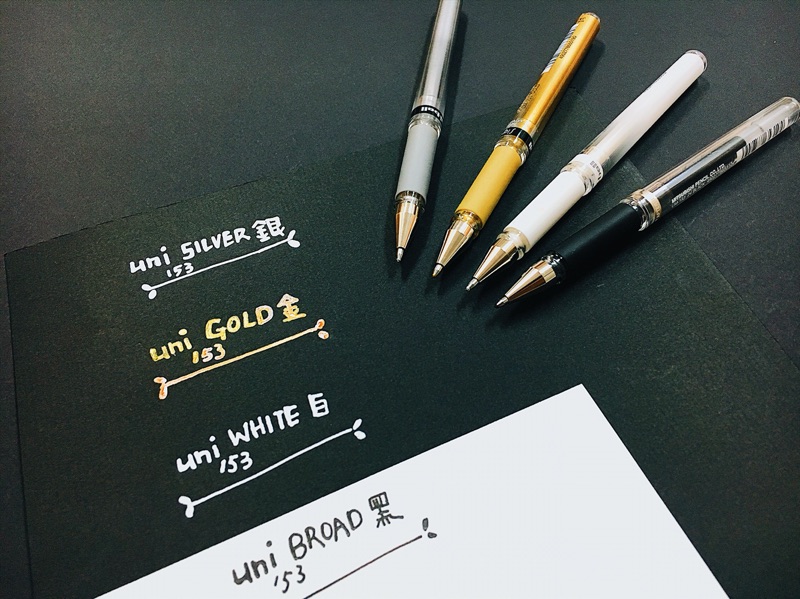 uni SILVER 銀
153
uni GOLD 金
153
uni WHITE 白
153
uni BROAD 黑
153
MITSUBISHI PENCIL CO.,LTD